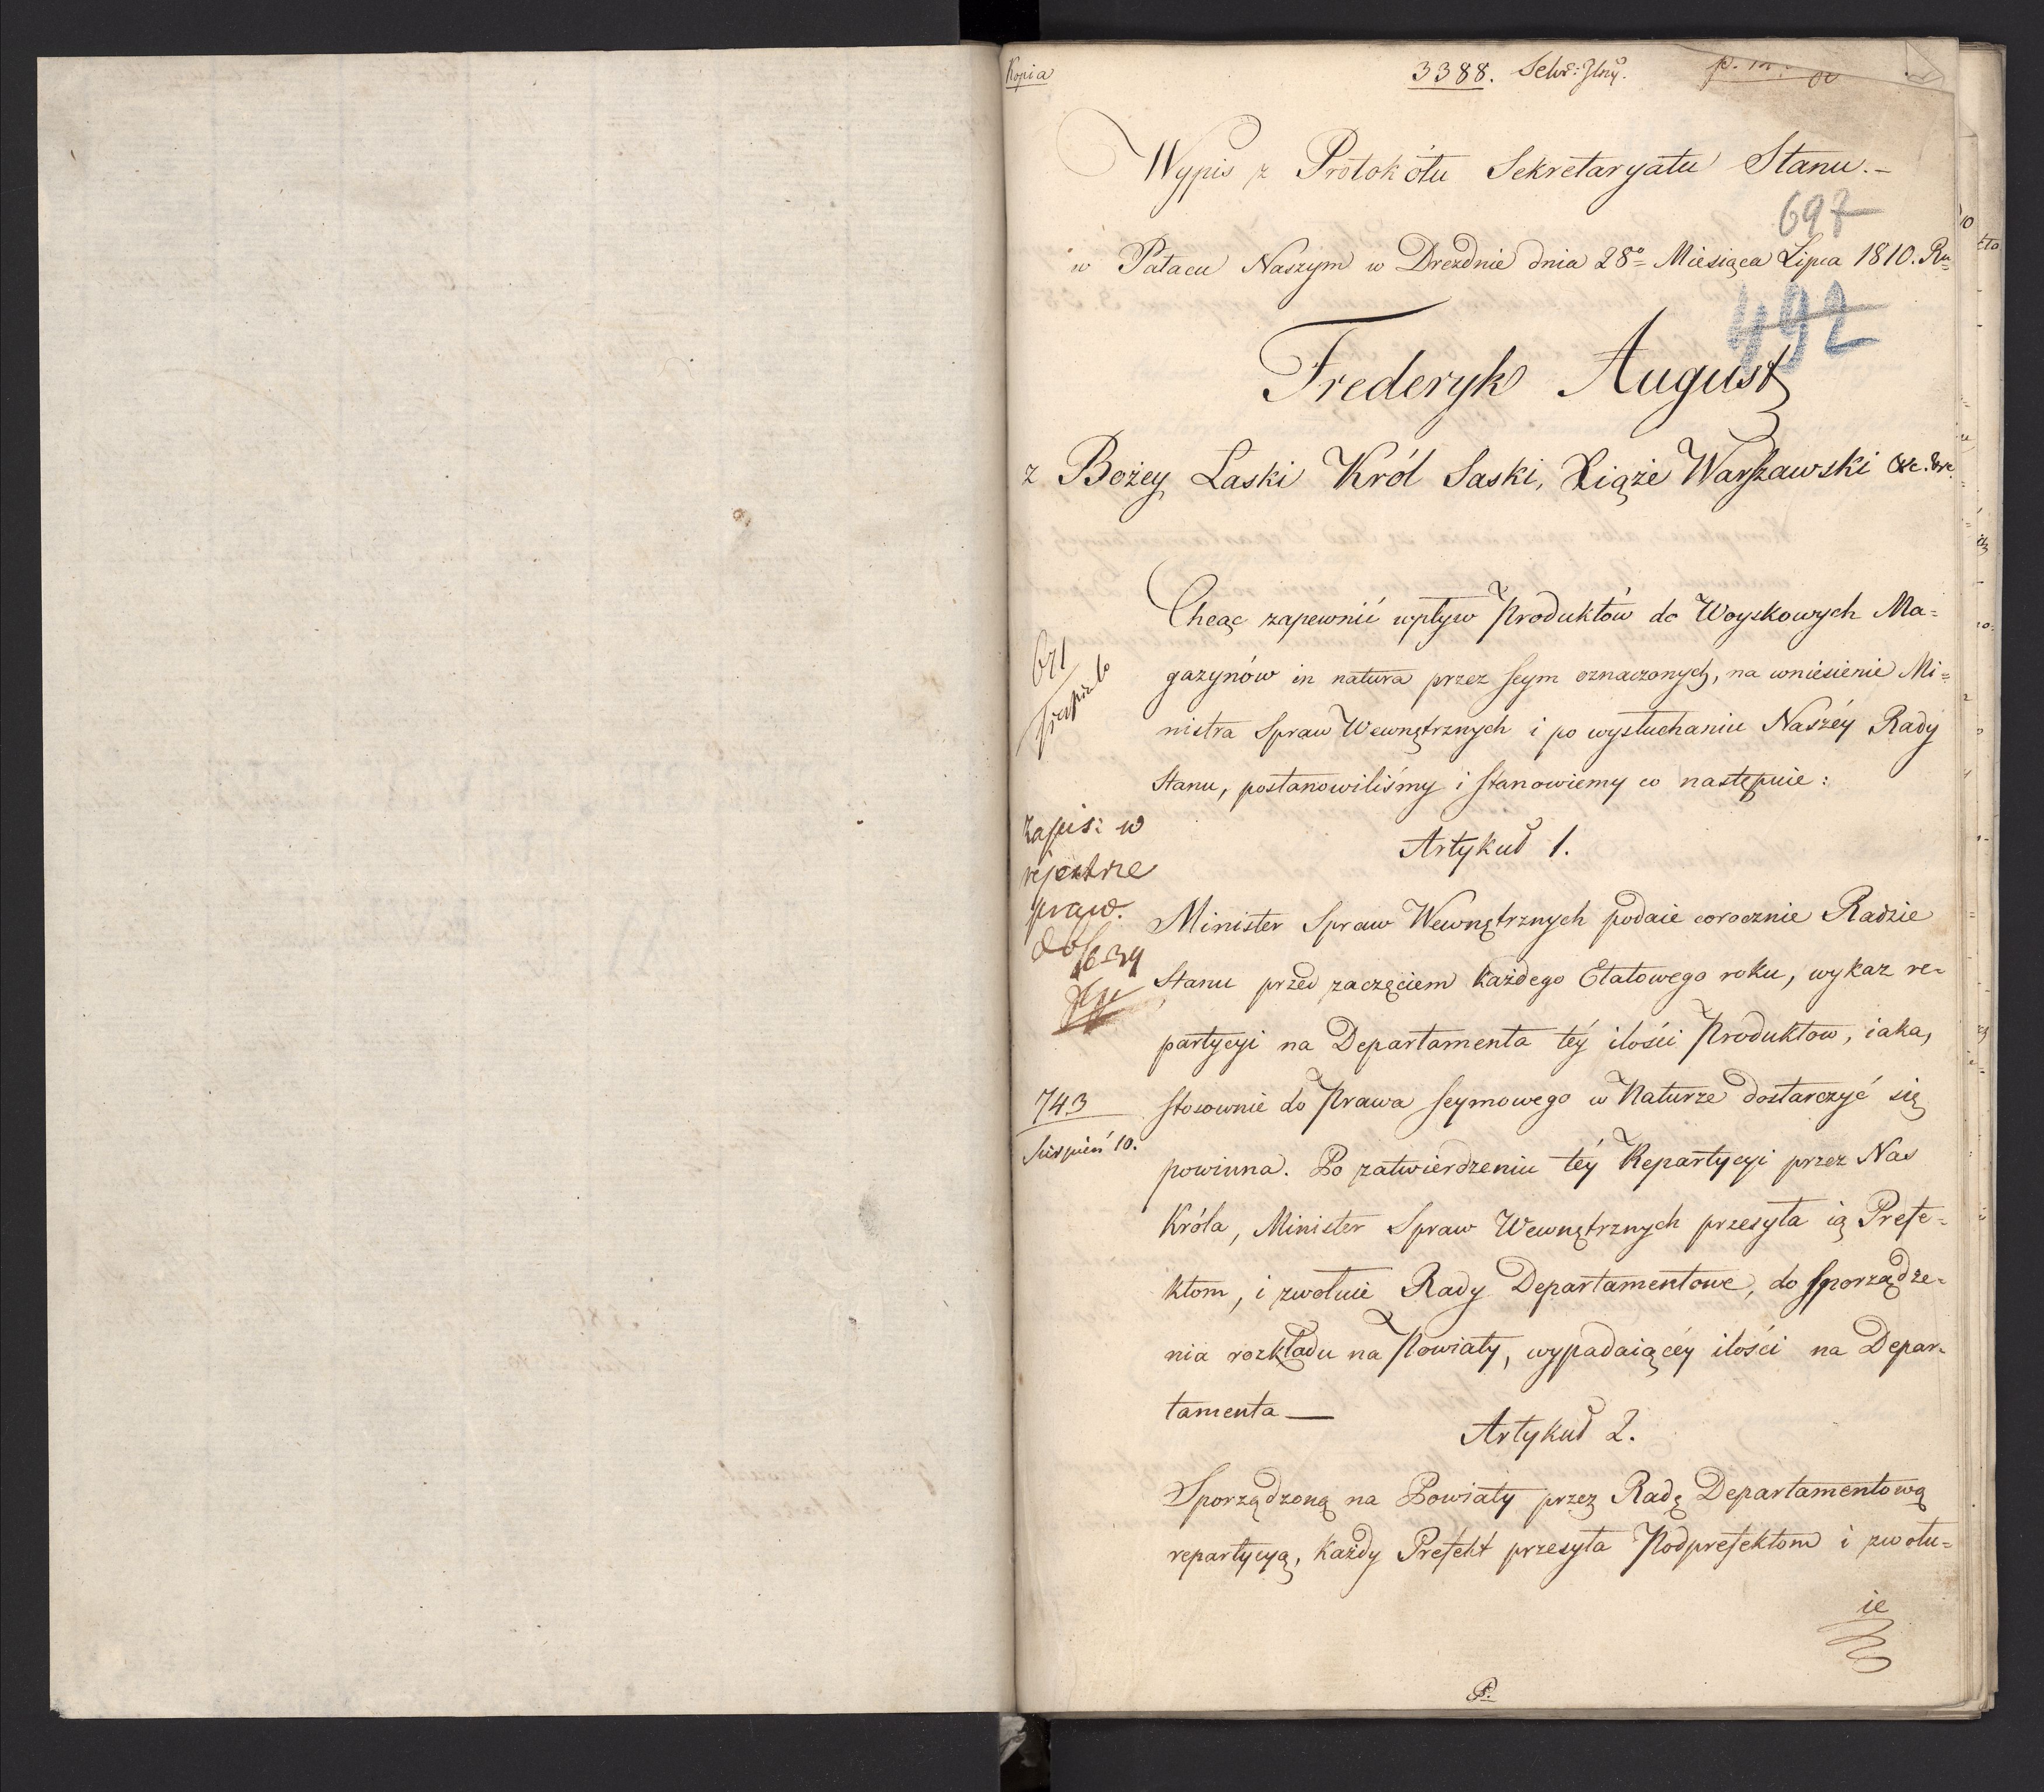 Kopia
3388.
Wypis z Protokółu Sekretaryatu Stanu.-
697
w Pałacu Naszym w Dreźdnie dnia 28º= Miesiąca Lipca 1810. Ru=
492
Frederyk August
z Bożey Łaski Król Saski, Xiąże Warszawski &c. &c.
Chcąc zapewnić wpływ Produktów do Woyskowych Ma=
gazynów in natura przez Seym oznaczonych, na wniesienie Mi=
nistra Spraw Wewnętrznych i po wysłuchaniu Naszéy Rady
Stanu, postanowiliśmy i stanowiemy co następuie:
zapis: w
rejestrze
praw.
Artykuł 1.
Minister Spraw Wewnętrznych podaie corocznie Radzie
Stanu przed zaczęciem każdego Etatowego roku, wykaz re=
partycyi na Departamenta téy ilości Produktow, iaka,
743
Sierpień 10.
stosownie do Prawa Seymowego w Naturze dostarczyć się
powinna. Po zatwierdzeniu téy Repartycyi przez Nas
Króla, Minister Spraw Wewnętrznych przesyła ią Prefe=
ktom, i zwołuie Rady Departamentowe, do sporządze=
nia rozkładu na Powiaty, wypadaiącéy ilości na Depar=
tamenta —
Artykuł 2.
Sporządzoną na Powiaty przez Radę Departamentową
repartycyą, każdy Prefekt przesyła Podprefektom i zwołu=
ie